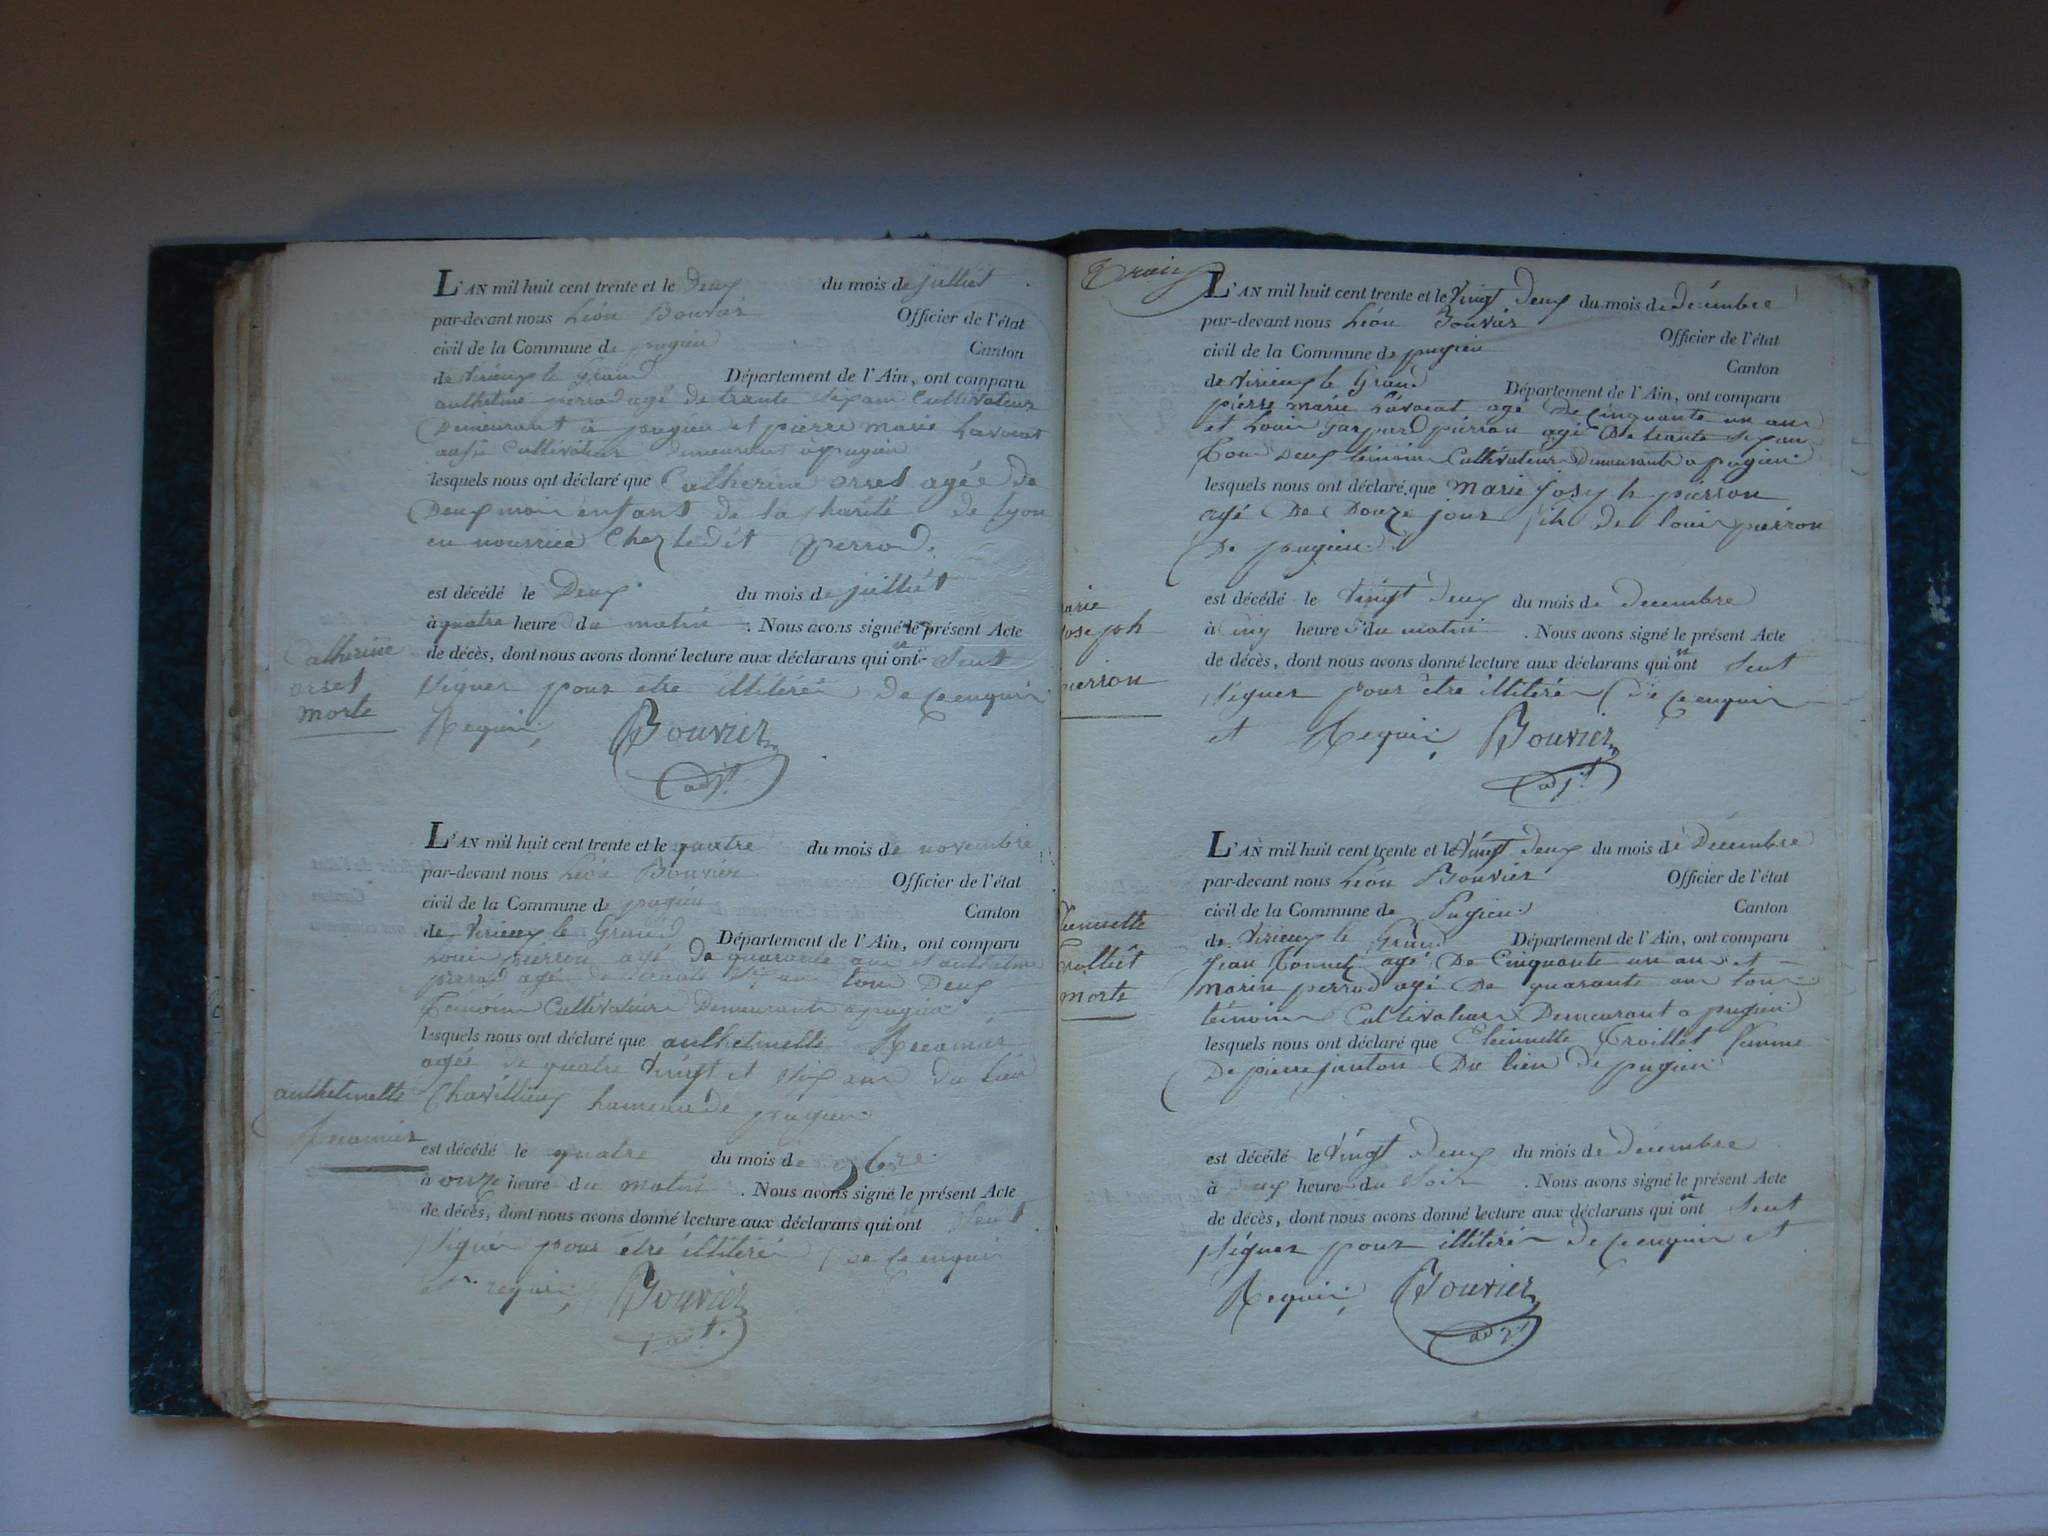 L'AN mil huit cent trente et le Deux du mois de juilliet
par-devant nous Léon Bouvier Officier de l'état
civil de la Commune de pugieu Canton
de Virieux le Grand Département de l'Ain, ont comparu
anthelme perrod agé de trante six ans Cultivateur
Demeurant à pugieu et pierre marie Lavocat
aussi Cultivateur demeurant à pugieu
lesquels nous ont déclaré que Catherine orsel agée de
Deux mois enfant de la charité de Lyon
en nourrice Chez ledit perrod.
est décédé le Deux du mois de juilliet
à quatre heure du matin . Nous avons signé le présent Acte
de décès, dont nous avons donné lecture aux déclarans qui n'ont seut
signer pour etre illitérés de ce enquis
Requis, Bouvier
adjt
Catherine
orsel
morte
L'AN mil huit cent trente et le quatre du mois de novembre
par-devant nous Léon Bouvier Officier de l'état
civil de la Commune de pugieu Canton
de Virieux le Grand Département de l'Ain, ont comparu
louis pierron agé de quarante ans et anthelme
perrod agé de trante six ans tous Deux
témoins Cultivateurs Demeurants a pugieu
lesquels nous ont déclaré que anthelmette Récamier
agée de quatre vingt et six ans du lieu
Chavillieux hameau de pugieu
anthelmette
Récamier
est décédé le quatre du mois de 9bre
à onze heure du matin . Nous avons signé le présent Acte
de décès, dont nous avons donné lecture aux déclarans qui n'ont seut
signer pour être illitérés de ce enquis
et requis, Bouvier
adjt.
L'AN mil huit cent trente et le Vingt Deux du mois de décembre
par-devant nous Léon Bouvier Officier de l'état
civil de la Commune de pugieu Canton
de Virieux le Grand Département de l'Ain, ont comparu
pierre marie Lavocat agé De cinquante un ans
et Louis Gaspard pierron agé De trante six ans
tous Deux témoins Cultivateurs Demeurants a pugieu
lesquels nous ont déclaré que marie Joseph pierron
agé De Douze jours fils de louis pierron
De pugieu
est décédé le Vingt deux du mois de decembre
à cinq heure du matin . Nous avons signé le présent Acte
de décès, dont nous avons donné lecture aux déclarans qui n'ont seut
signer pour être illitérés de ce enquis
et Requis, Bouvier
adjt
arie
Joseph
pierron
L'AN mil huit cent trente et le Vingt Deux du mois de Décembre
par-devant nous Léon Bouvier Officier de l'état
civil de la Commune de Pugieu Canton
de Virieux le Grand Département de l'Ain, ont comparu
Jean agé De Cinquante un ans et
marin perrod agé De quarante ans tous
témoins Cultivateurs Demeurant a pugieu
lesquels nous ont déclaré que Etiennette Trolliet femme
De pierre janton Du lieu de pugieu
Etiennette
Trolliet
morte
est décédé le Vingt Deux du mois de décembre
à heure du Soir . Nous avons signé le présent Acte
de décès, dont nous avons donné lecture aux déclarans qui n'ont seut
signer pour illitérés de ce enquis et
Requis, Bouvier
adjt